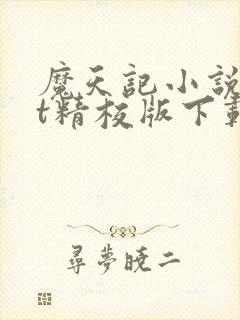 魔天記小說
t精校版下載
尋夢曉二